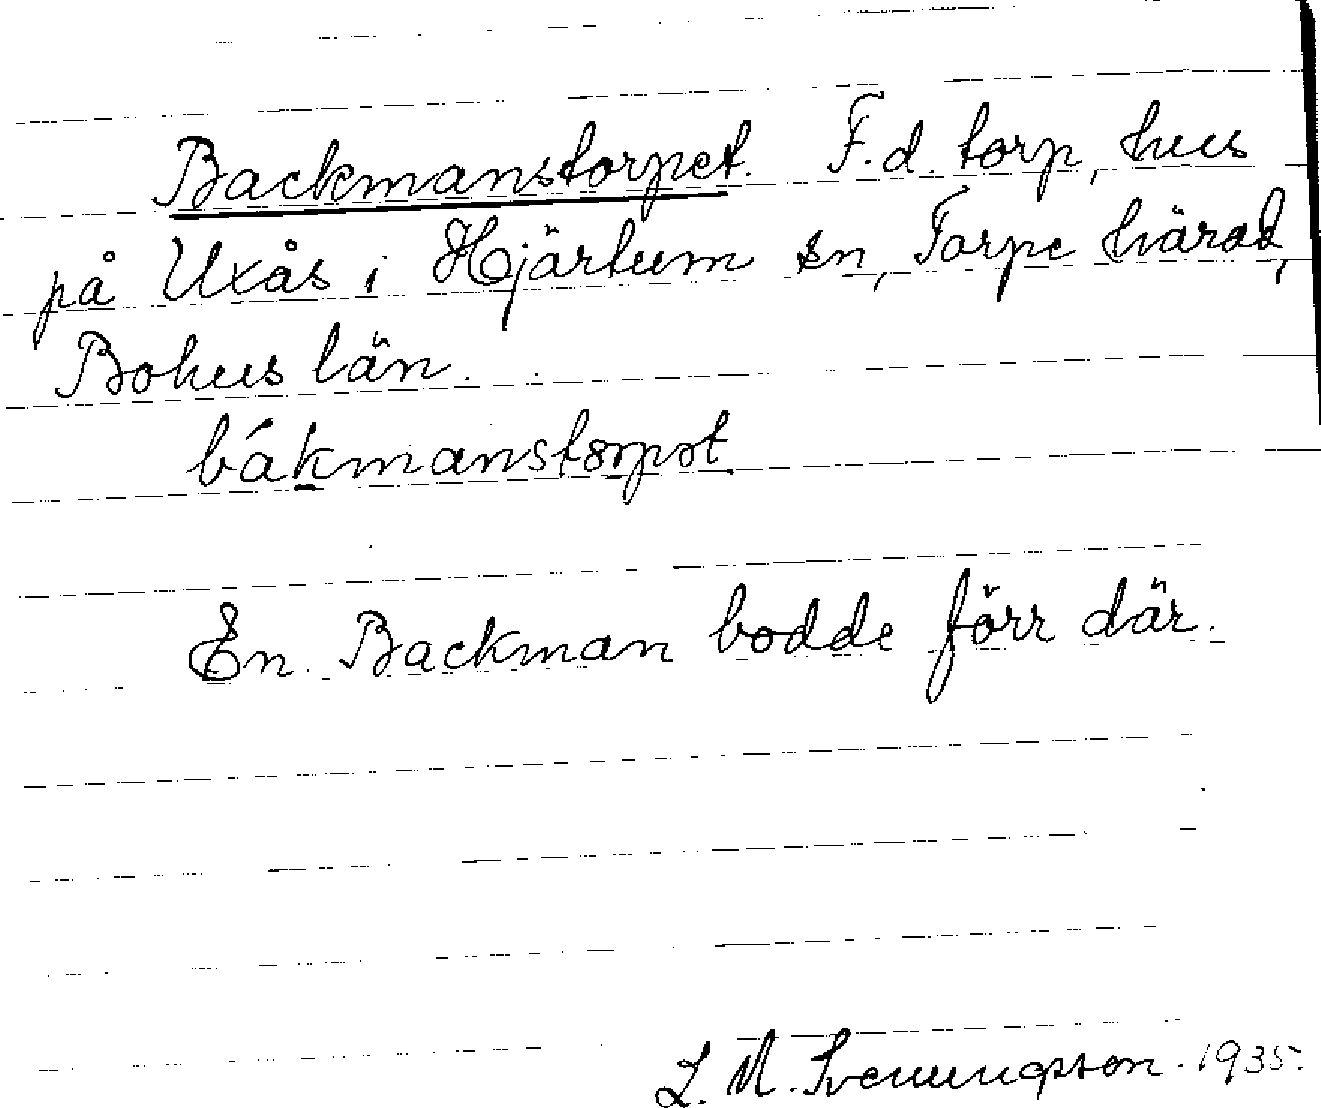 Backmanstorpet. F.d. torp, hus
på Uxås i Hjärtum sn, Torpe härad,
Bohus län.
bákmanstorpət
En Backman bodde förr där.
L. M. Svenungsson. 1935.